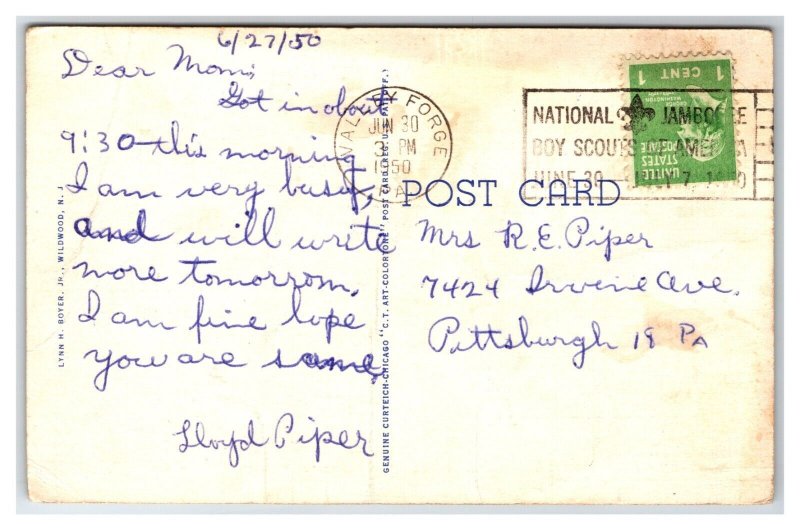 6/27/50
Dear Mom,
Got in about
9:30 this morning
I am very busy,
and will write
more tomorrom.
I am fine hope
you are same.
Lloyd Piper
LYNN H. BOYER, JR., WILDWOOD, N. J.
GENUINE CURTEICH-CHICAGO "C.T. ART-COLORTONE" POST CARD (REG. U.S. PAT. OFF.)
VALLEY FORGE
JUN 30
3 PM
1950
PA.
NATIONAL JAMBOREE
BOY SCOUTS OF AMERICA
JUNE 30 - JULY 7, 1950
1 CENT 1
WASHINGTON
UNITED
STATES
POSTAGE
POST CARD
Mrs R.E. Piper
7424 Irvine Ave.
Pittsburgh 18 PA